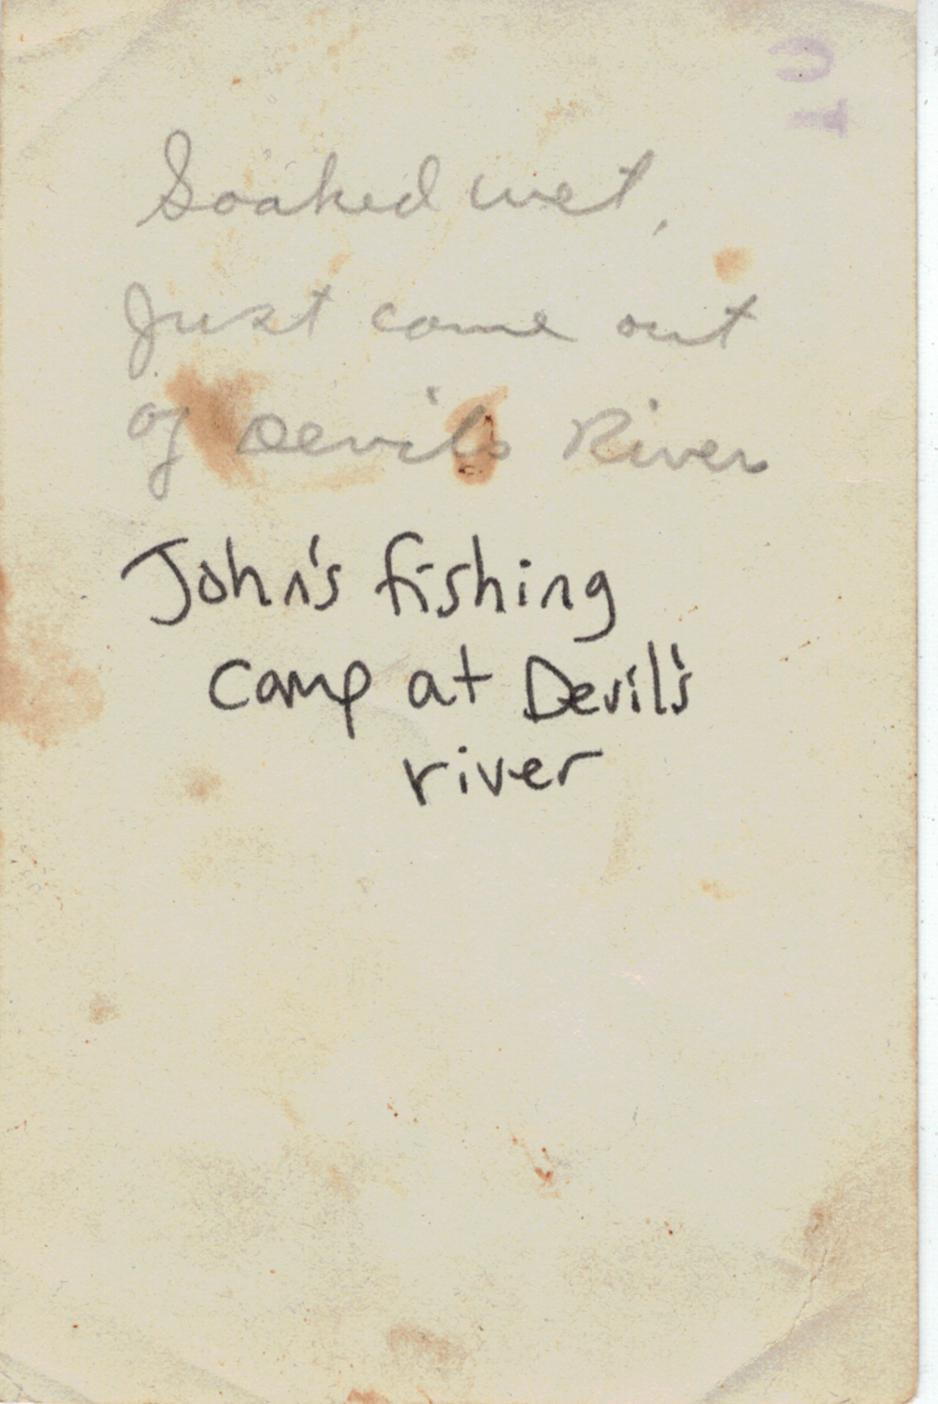 Soaked wet,
Just come out
of Devils River
John's fishing
camp at Devil's
river